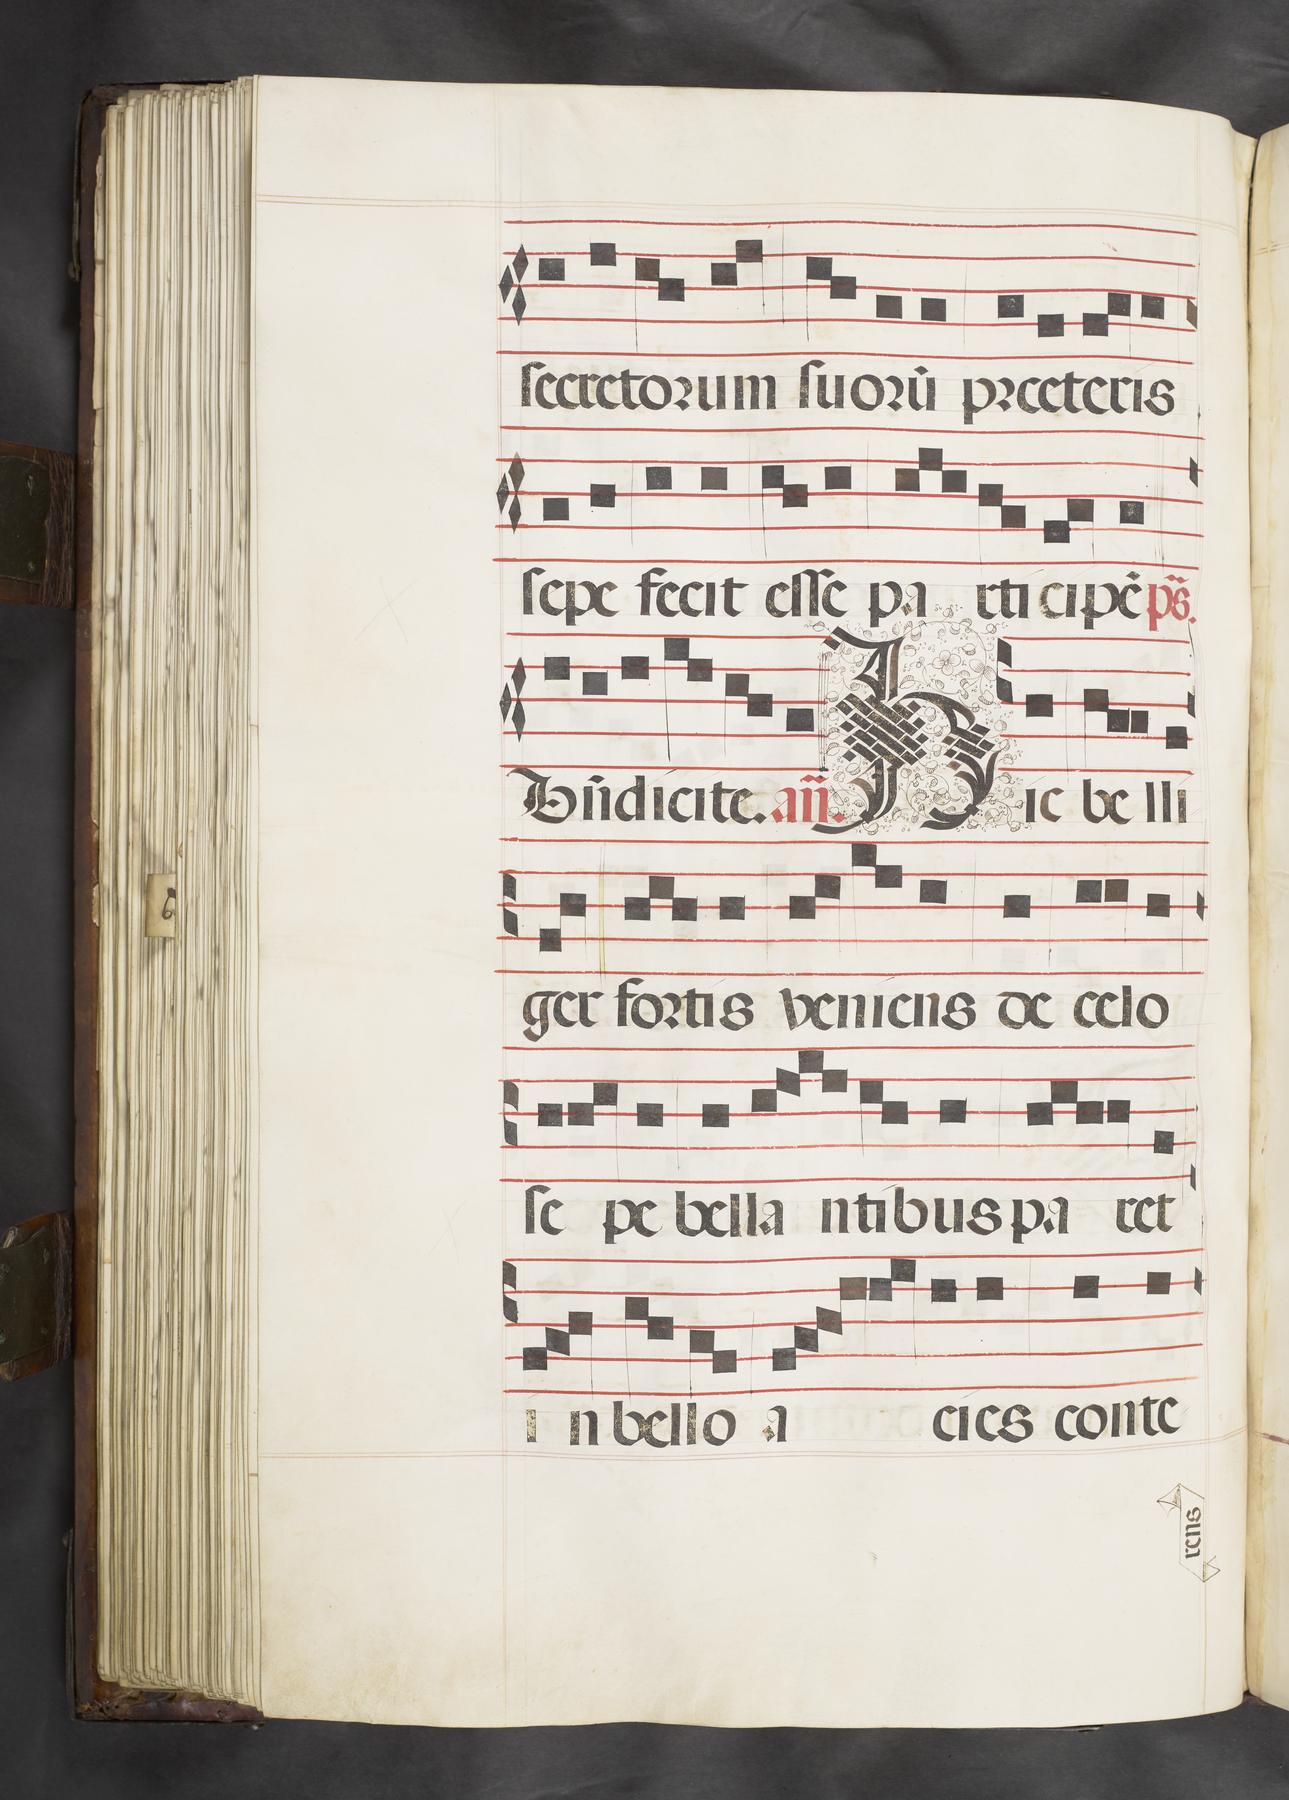 secretorum suorū preeteris
sepe fecit esse pa rti cipē ps̄.
Bn̄dicite. an̄. H ic be lli
ger fortis veniens de celo
se pe bella ntibus pa ret
i n bello a cies conte
rens